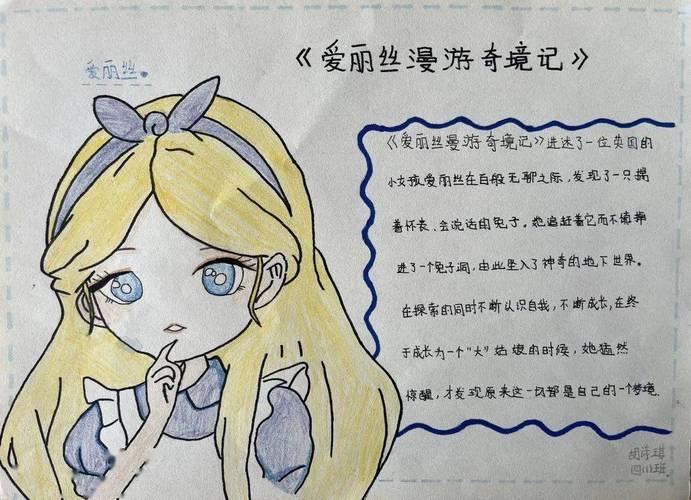 《爱丽丝漫游奇境记》
爱丽丝
《爱丽丝漫游奇境记》讲述了一位英国的
小女孩爱丽丝在百般无聊之际,发现了一只揣
着怀表、会说话的兔子。她追赶着它而不慎掉
进了一个兔子洞,由此坠入了神奇的地下世界。
在探索的同时不断认识自我,不断成长,在终
于成长为一个“大”姑娘的时候,她猛然
惊醒,才发现原来这一切都是自己的一个梦境.
胡诗琪
四(1)班